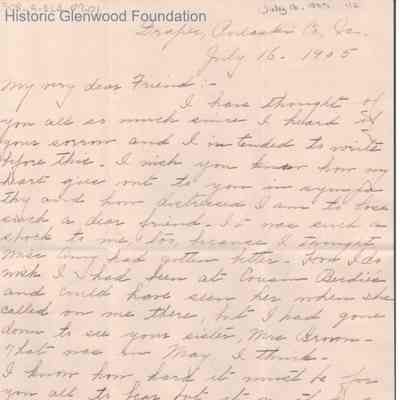 Historic Glenwood Foundation
July 16, 1905
Draper, Pulaski Co., Va.
July 16. 1905
My very dear Friend:-
I have thought of
you all so much since I heard of
your sorrow and I intended to write
before this. I wish you knew how my
heart goes out to you in sympa
thy and how distressed I am to lose
such a dear friend. It was such a
shock to me, too, because I thought
Miss Amy had gotten better. How I do
wish I had been at Cousin Berdie's
and could have seen her when she
called on me there, but I had gone
down to see your sister, Mrs Brown-
That was in May I think-
I know how hard it must be for
you all to bear but it